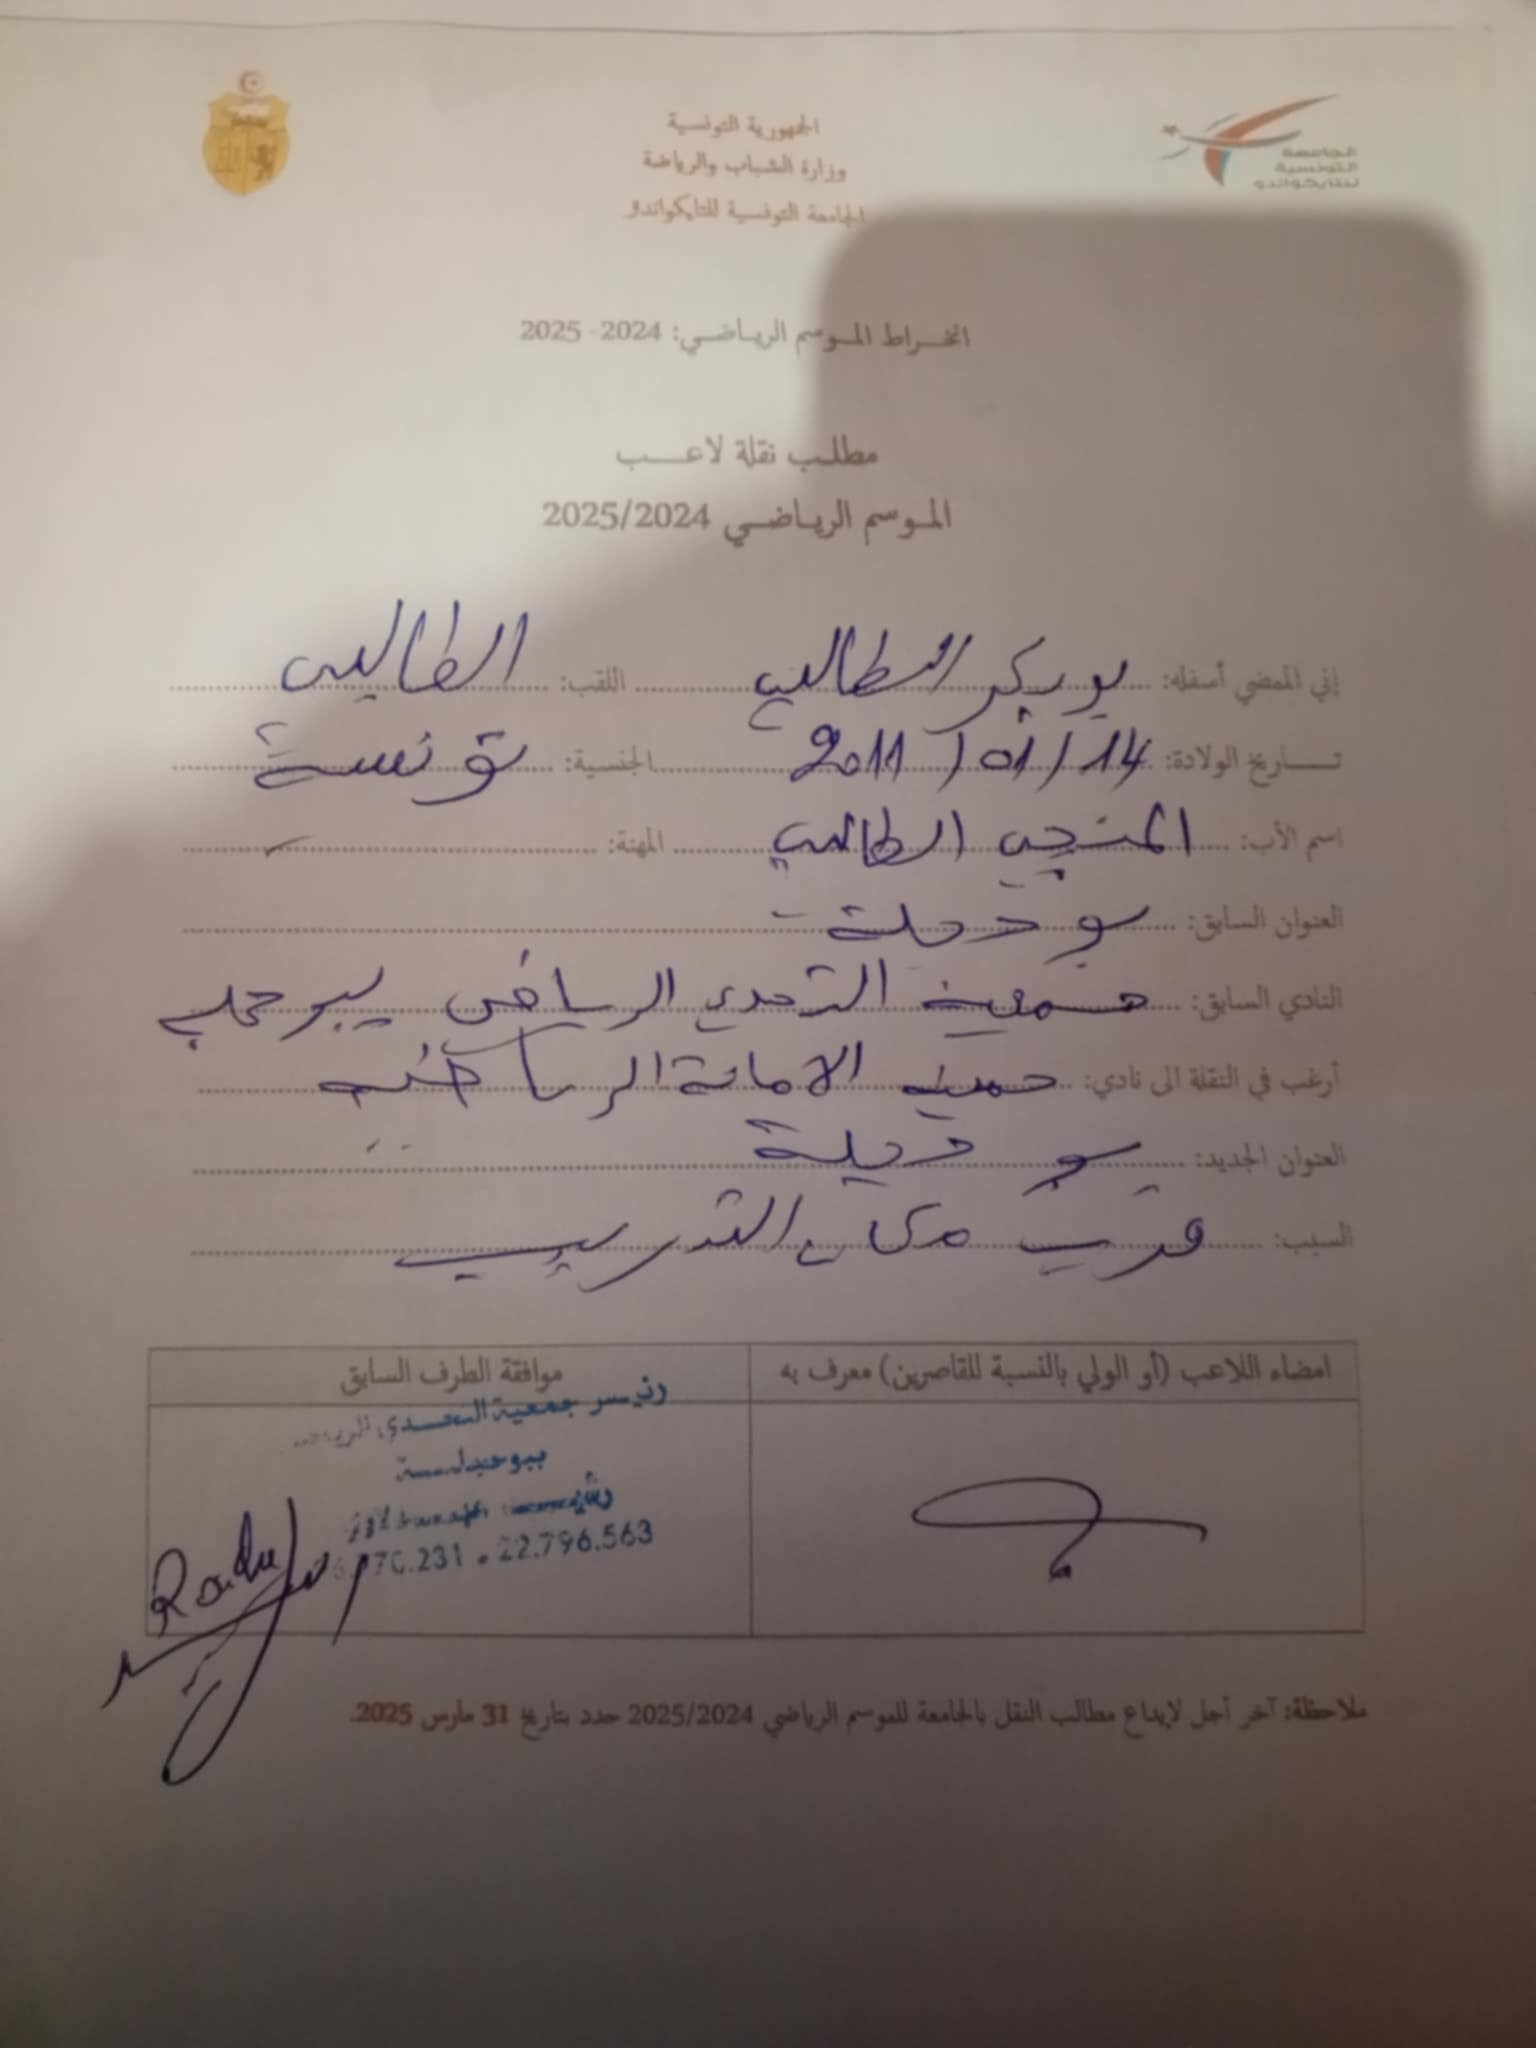 الجمهورية التونسية
وزارة الشباب والرياضة
الجامعة التونسية للتايكواندو
الجامعة
التونسية
للتايكواندو
انخراط الموسم الرياضي: 2024- 2025
مطلب نقلة لاعب
الموسم الرياضي 2025/2024
إني الممضي أسفله: بوبكر الطالبي اللقب: الطالبي
تاريخ الولادة: 14/01/2011 الجنسية: تونسية
اسم الأب: المنجي الطالبي المهنة:
العنوان السابق: بوحجلة
النادي السابق: جمعية التحدي الرياضي ببوحجلة
أرغب في النقلة الى نادي: جمعية الامانة الرياضية
العنوان الجديد: بوحجلة
السبب: قرب مكان التدريب
امضاء اللاعب (أو الولي بالنسبة للقاصرين) معرف به
موافقة الطرف السابق
رئيس جمعية التحدي
ببوحجلة
22.796.563
ملاحظة: آخر أجل لإيداع مطالب النقل بالجامعة للموسم الرياضي 2025/2024 حدد بتاريخ 31 مارس 2025.